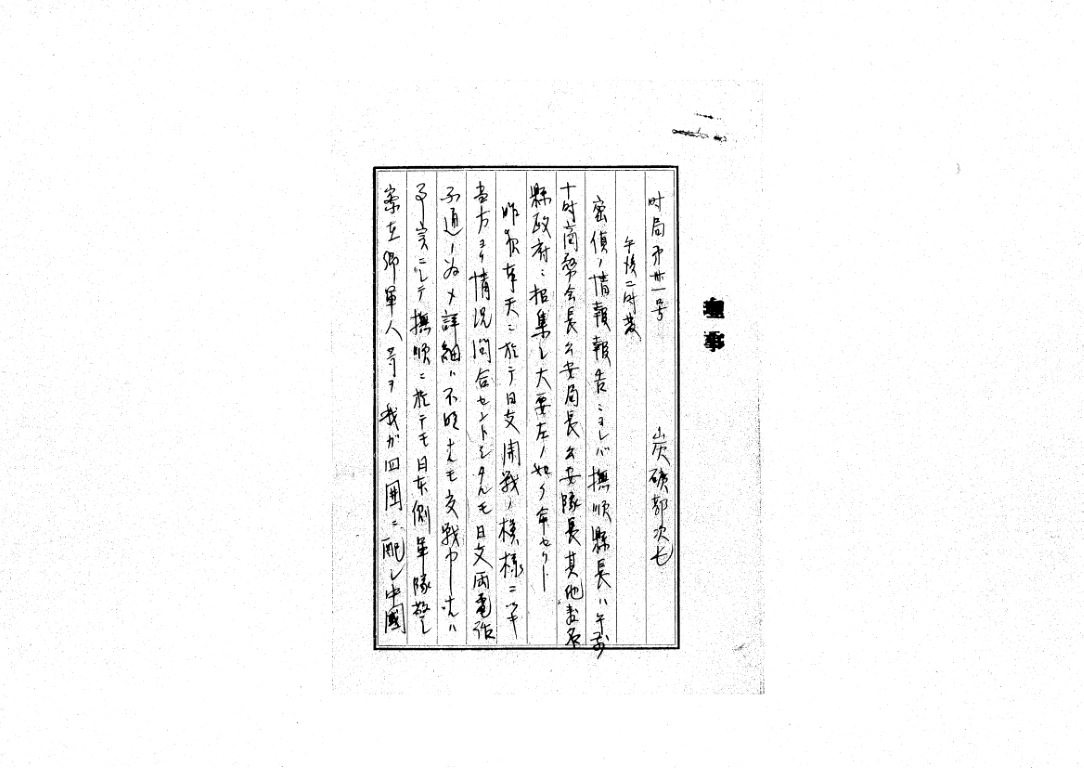 理事
時局第卅一号 炭礦部次長
午後二時発
密偵ノ情報報告ニヨレバ撫順縣長ハ午前
十時商務会長公安局長公安隊長其他委員
縣政府ニ招集シ大要左ノ如ク命セリ
昨夜奉天ニ於テ日支開戦ノ模様ニツキ
当方ヨリ情況問合セントシタルモ日文両電話
不通ノ為メ詳細ハ不明ナルモ交戦中ナルハ
事実ニシテ撫順ニ於テモ日本側軍隊警
察在郷軍人等ヲ我ガ四囲ニ配シ中國